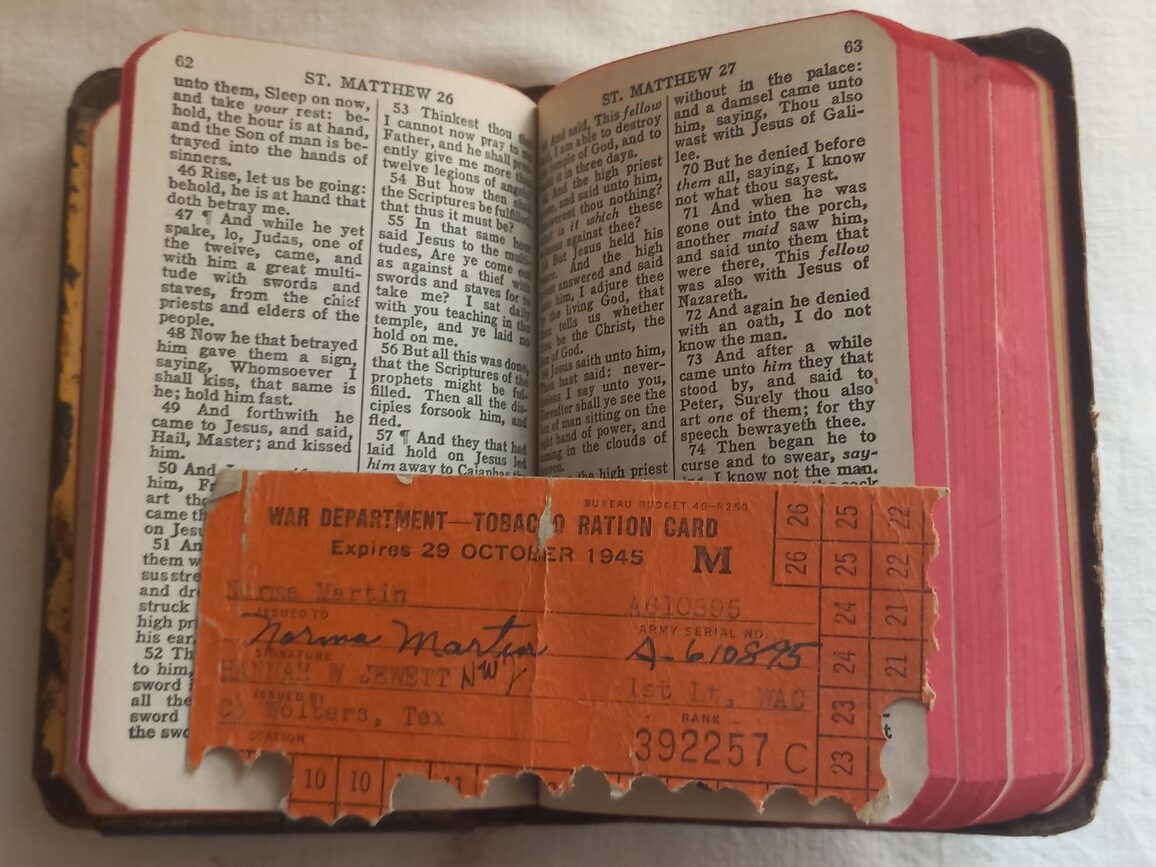 62
ST. MATTHEW 26
unto them, Sleep on now,
and take your rest: be-
hold, the hour is at hand,
and the Son of man is be-
trayed into the hands of
sinners.
46 Rise, let us be going:
behold, he is at hand that
doth betray me.
47 ¶ And while he yet
spake, lo, Judas, one of
the twelve, came, and
with him a great multi-
tude with swords and
staves, from the chief
priests and elders of the
people.
48 Now he that betrayed
him gave them a sign,
saying, Whomsoever I
shall kiss, that same is
he; hold him fast.
49 And forthwith he
came to Jesus, and said,
Hail, Master; and kissed
him.
50 And
him,
art
came
on
51
them
sus
and
struck
high
his ear.
52
to him,
sword
all the
sword
the
53 Thinkest thou
I cannot now pray
Father, and he shall
ently give me more
twelve legions of
54 But how then
the Scriptures be
that thus it must be?
55 In that same
said Jesus to the multi-
tudes, Are ye come
as against a thief with
swords and staves for
take me? I sat daily
with you teaching in the
temple, and ye laid no
hold on me.
56 But all this was done,
that the Scriptures of the
prophets might be ful-
filled. Then all the dis-
ciples forsook him, and
fled.
57 ¶ And they that had
laid hold on Jesus led
him away to Caiaphas
63
ST. MATTHEW 27
And said, This fellow
I am able to destroy
of God, and to
it in three days.
And the high priest
and said unto him,
thou nothing?
is it which these
against thee?
But Jesus held his
And the high
answered and said
him, I adjure thee
the living God, that
tells us whether
be the Christ, the
of God.
Jesus saith unto him,
hast said: never-
I say unto you,
shall ye see the
of man sitting on the
hand of power, and
in the clouds of
the high priest
without in the palace:
and a damsel came unto
him, saying, Thou also
wast with Jesus of Gali-
lee.
70 But he denied before
them all, saying, I know
not what thou sayest.
71 And when he was
gone out into the porch,
another maid saw him,
and said unto them that
were there, This fellow
was also with Jesus of
Nazareth.
72 And again he denied
with an oath, I do not
know the man.
73 And after a while
came unto him they that
stood by, and said to
Peter, Surely thou also
art one of them; for thy
speech bewrayeth thee.
74 Then began he to
curse and to swear, say-
I know not the man.
BUREAU BUDGET 49-R250
WAR DEPARTMENT—TOBACCO RATION CARD
Expires 29 OCTOBER 1945 M
Norma Martin A610895
ISSUED TO ARMY SERIAL NO.
Norma Martin A-610895
SIGNATURE
HANNAH W JEWETT NWJ 1st Lt, WAC
ISSUED BY RANK
Wolters, Tex
STATION
392257 C
26 25 22
26 25 22
24 21
24 21
23
23
10 10 11